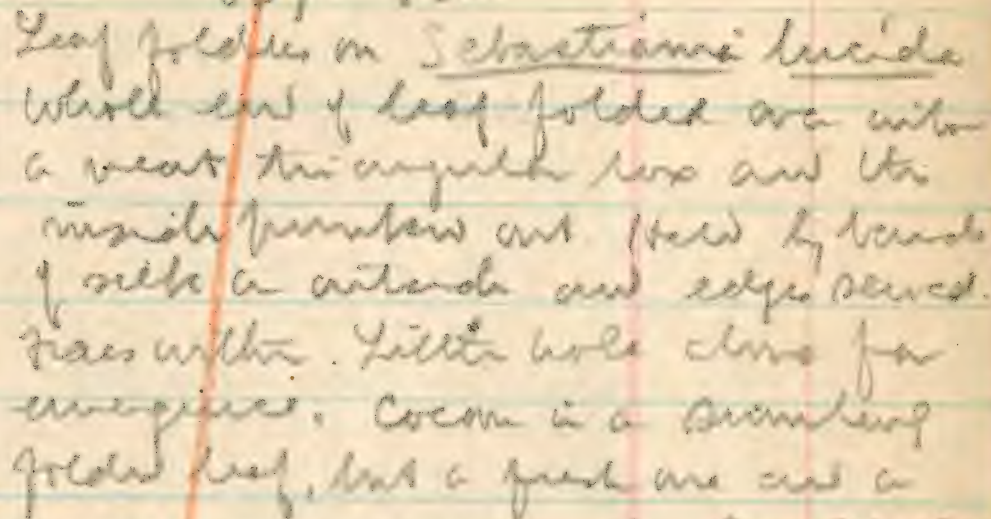 Leaf folders on Sebastiania lucida
Whole end of leaf folded over into
a neat triangular box and the
inside out Held by bands
of silk on outside and edges sewed.
Frass within. Little hole chewed for
emergence. Cocoon in a similarly
folded leaf, but a fresh one and a